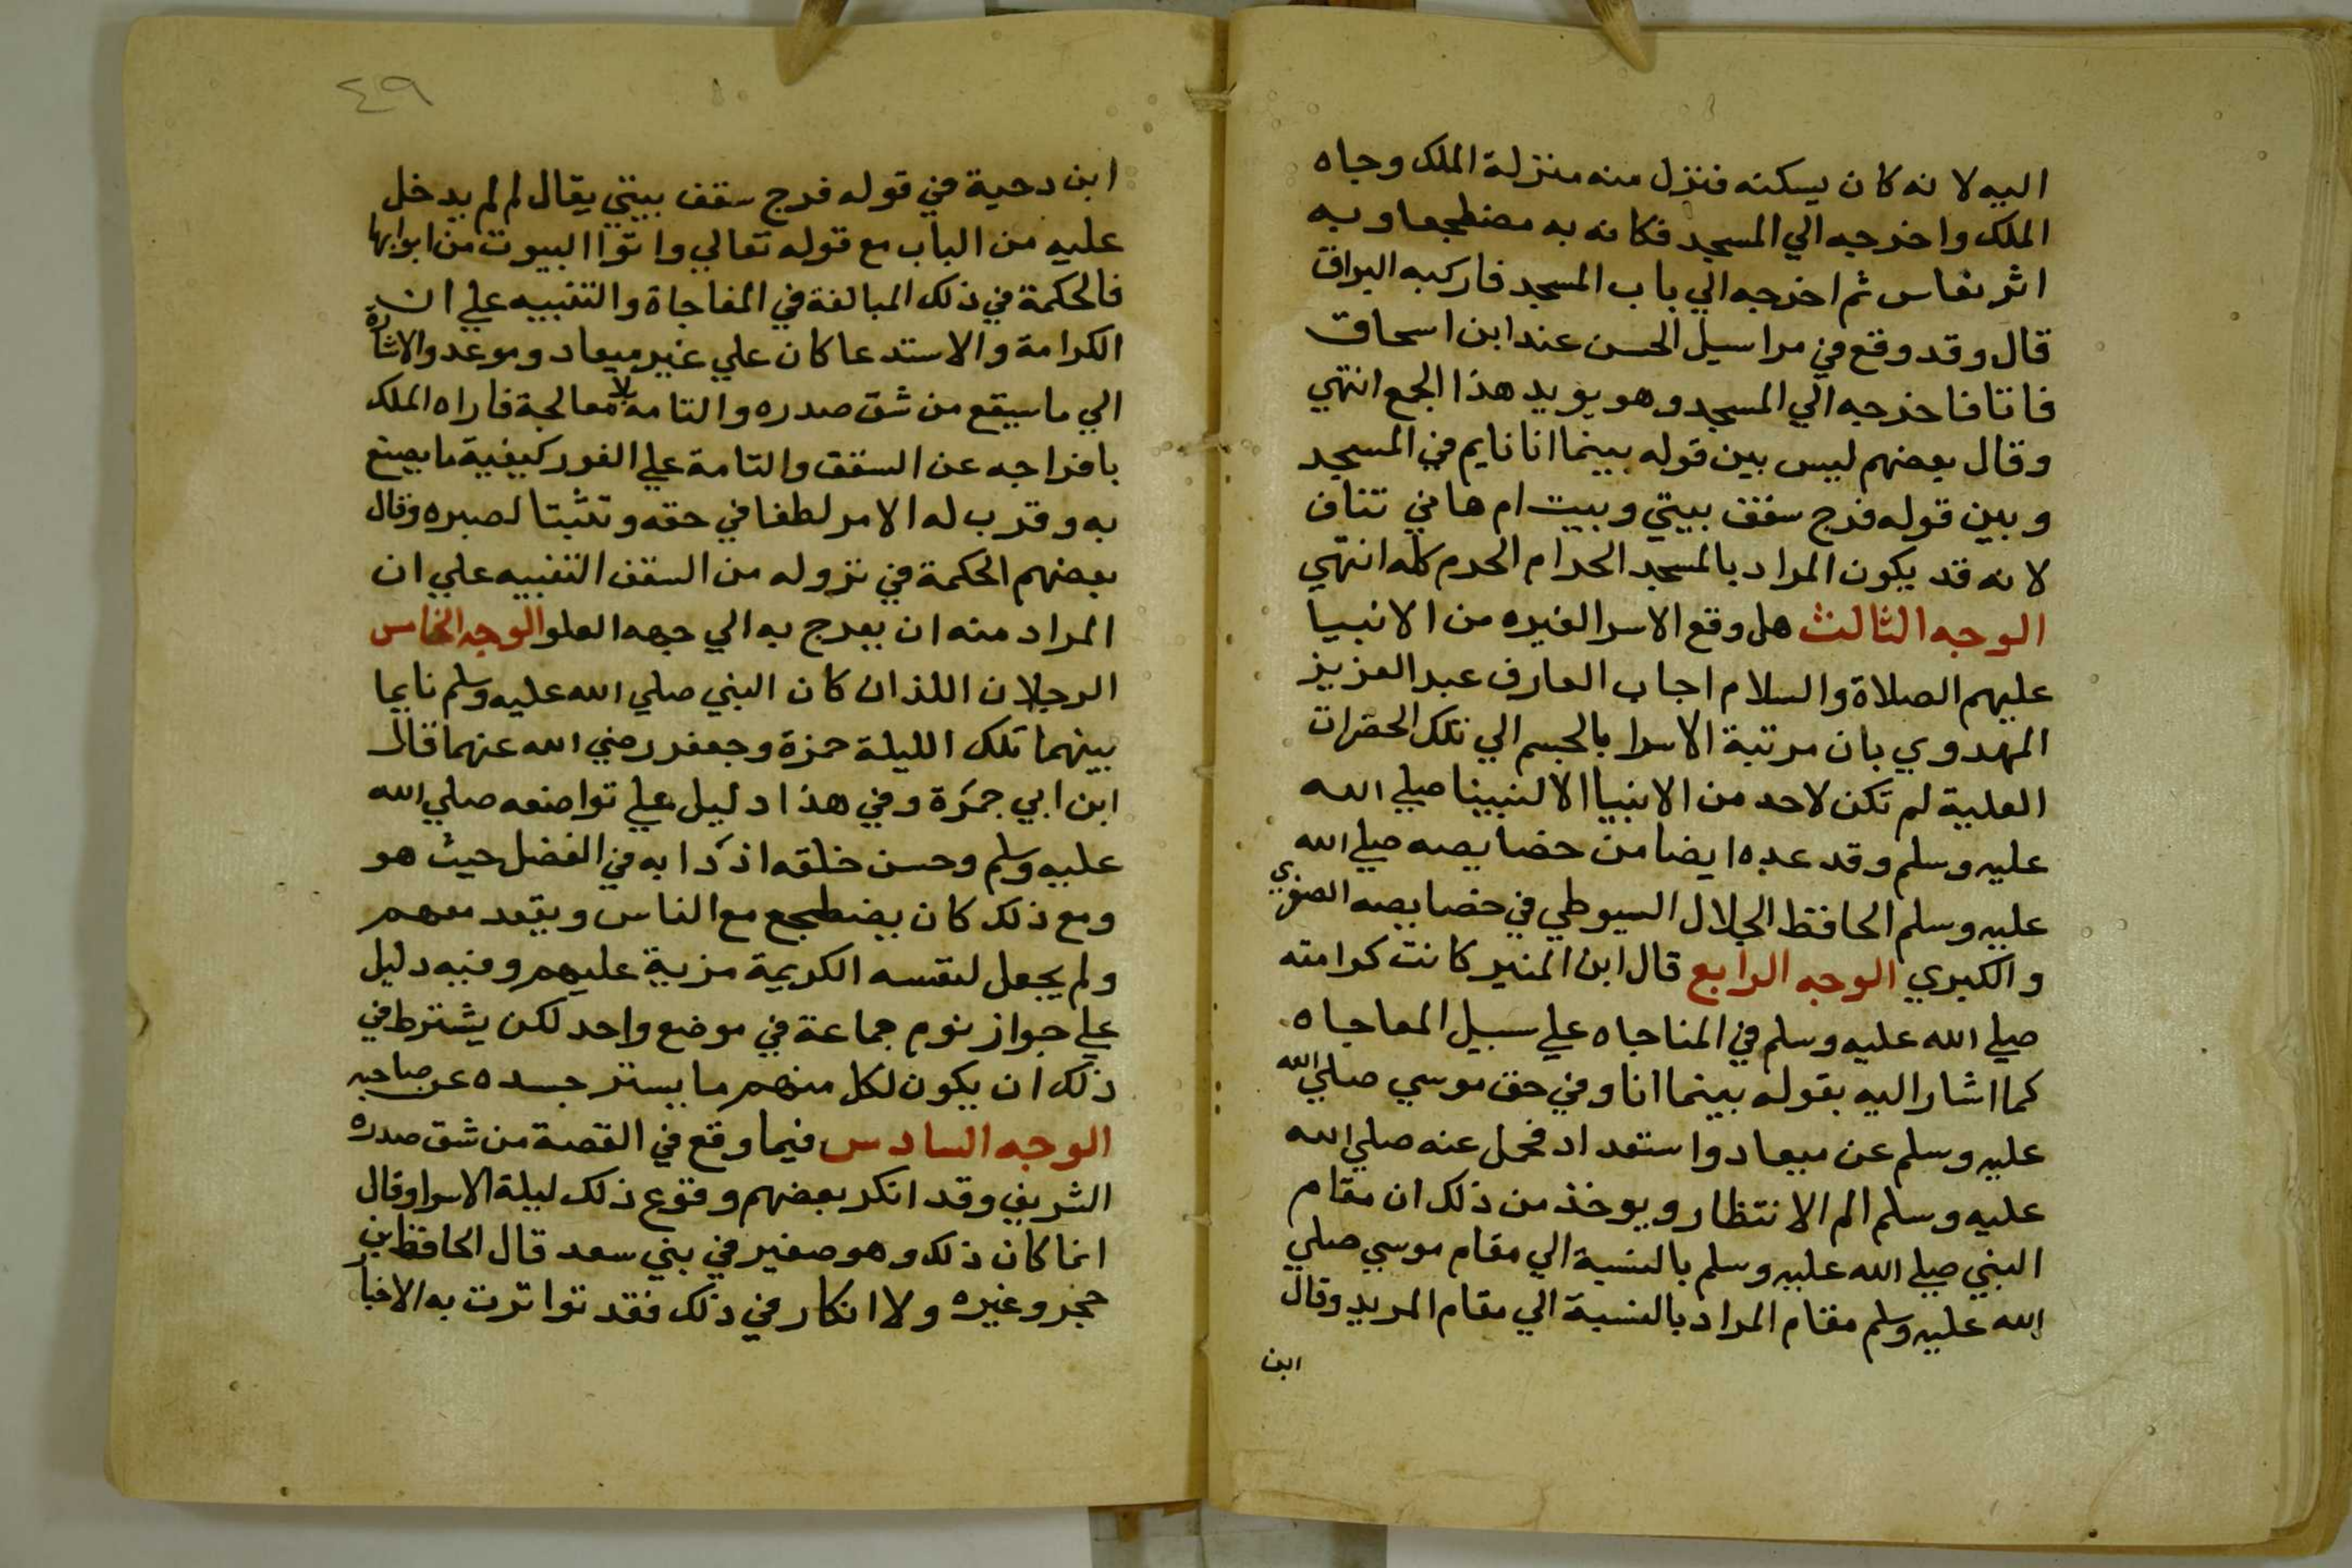 اليه لانه كان يسكنه فنزل منه منزلة الملك وجاه
الملك واخرجه الي المسجد فكان به مضطجعا وبه
اثر نعاس ثم اخرجه الي باب المسجد فاركبه البراق
قال وقد وقع في مراسيل الحسن عند ابن اسحاق
فاتانا فاخرجه الي المسجد وهو يويد هذا الجمع انتهي
وقال بعضهم ليس بين قوله بينما انا نايم في المسجد
وبين قوله فرج سقف بيتي وبيت ام هاني تناف
لانه قد يكون المراد بالمسجد الحرام الحرم كله انتهي
الوجه الثالث هل وقع الاسرا لغيره من الانبيا
عليهم الصلاة والسلام اجاب العارف عبد العزيز
المهدوي بان مرتبة الاسرا بالجسم الي تلك الحضرات
العلية لم تكن لاحد من الانبيا الا لنبينا صلي الله
عليه وسلم وقد عده ايضا من خصايصه صلي الله
عليه وسلم الحافظ الجلال السيوطي في خصايصه الصغري
والكبري الوجه الرابع قال ابن المنير كانت كرامته
صلي الله عليه وسلم في المناجاه علي سبيل المفاجاه
كما اشار اليه بقوله بينما انا وفي حق موسي صلي الله
عليه وسلم عن ميعاد واستعداد فحمل عنه صلي الله
عليه وسلم الم الانتظار ويوخذ من ذلك ان مقام
النبي صلي الله عليه وسلم بالنسبة الي مقام موسي صلي
الله عليه وسلم مقام المراد بالنسبة الي مقام المريد وقال
ابن
٤٩
ابن دحية في قوله فرج سقف بيتي يقال لم لم يدخل
عليه من الباب مع قوله تعالي واتوا البيوت من ابوابها
فالحكمة في ذلك المبالغة في المفاجاة والتنبيه علي ان
الكرامة والاستدعا كان علي غير ميعاد وموعد والاشارة
الي ما سيقع من شق صدره والتامه بلا معالجة فاراه الملك
بافراجه عن السقف والتامة علي الفور كيفية ما يصنع
به وقرب له الامر لطفا في حقه وتثبتا لصبره وقال
بعضهم الحكمة في نزوله من السقف التنبيه علي ان
المراد منه ان يعرج به الي جهه العلو الوجه الخامس
الرجلان اللذان كان النبي صلي الله عليه وسلم نايما
بينهما تلك الليلة حمزة وجعفر رضي الله عنهما قال
ابن ابي جمرة وفي هذا دليل علي تواضعه صلي الله
عليه وسلم وحسن خلقه اذ به في الفضل حيث هو
ومع ذلك كان يضطجع مع الناس ويقعد معهم
ولم يجعل لنفسه الكريمة مزية عليهم وفيه دليل
علي جواز نوم جماعة في موضع واحد لكن يشترط في
ذلك ان يكون لكل منهم ما يستر جسده عن صاحبه
الوجه السادس فيما وقع في القصة من شق صدره
الشريف وقد انكر بعضهم وقوع ذلك ليلة الاسرا وقال
انما كان ذلك وهو صغير في بني سعد قال الحافظ بن
حجر وغيره ولا انكار في ذلك فقد تواترت به الاخبار